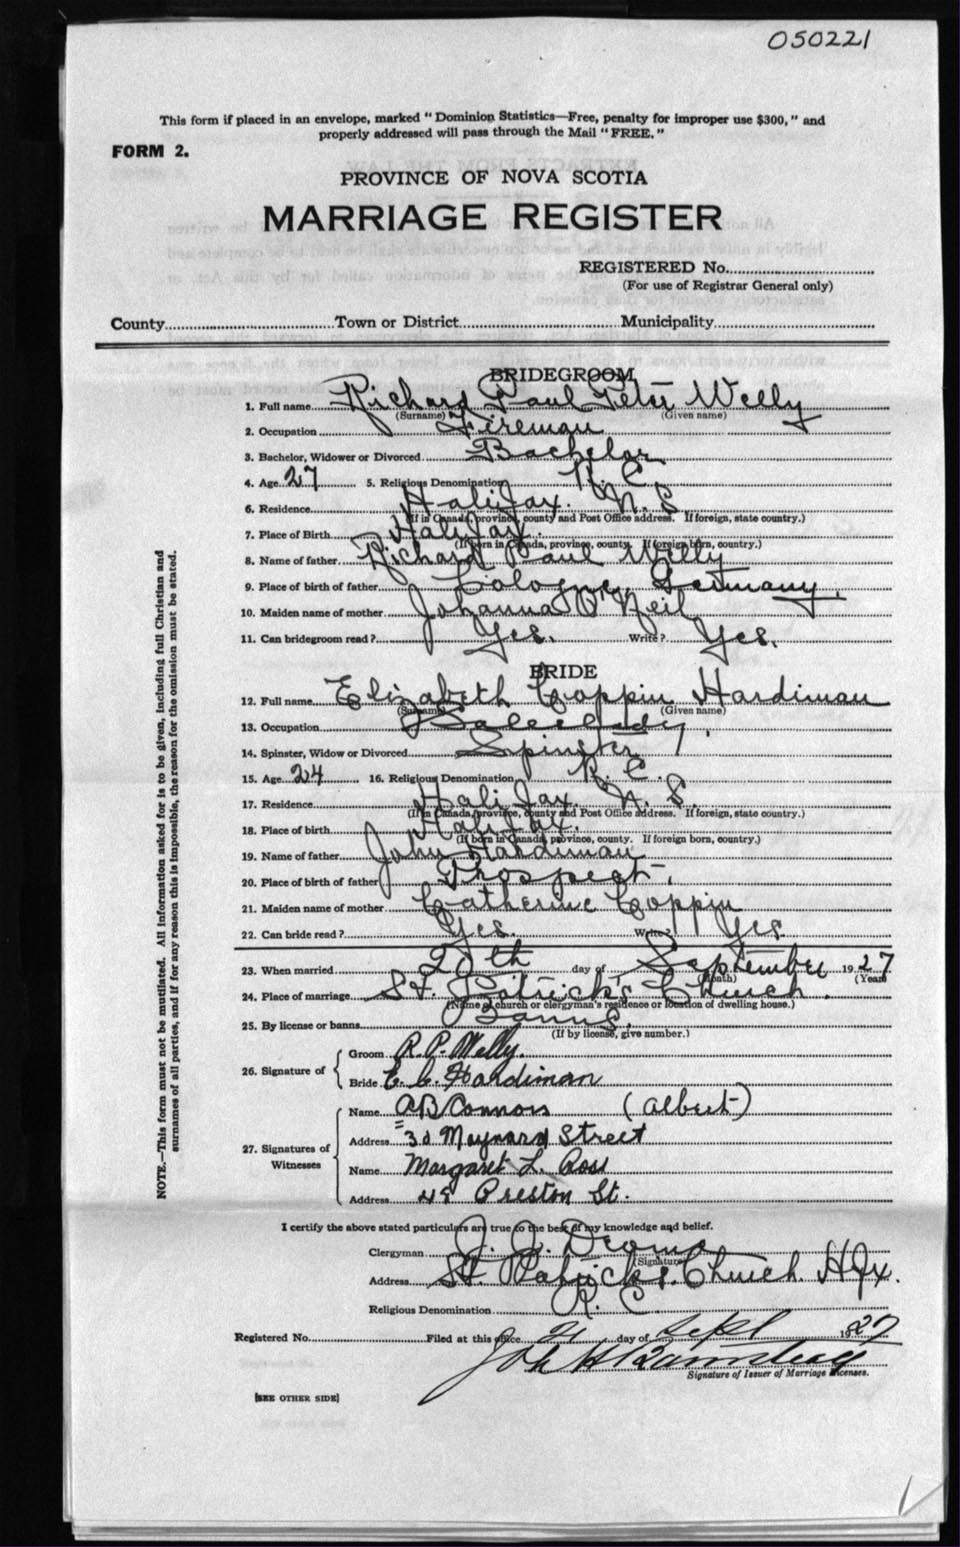 050221
This form if placed in an envelope, marked "Dominion Statistics—Free, penalty for improper use $300," and
properly addressed will pass through the Mail "FREE."
FORM 2.
PROVINCE OF NOVA SCOTIA
MARRIAGE REGISTER
REGISTERED No.
(For use of Registrar General only)
County Town or District Municipality
BRIDEGROOM
1. Full name Richard Paul Peter Welly
(Surname) (Given name)
2. Occupation Fireman
3. Bachelor, Widower or Divorced Bachelor
4. Age 27 5. Religious Denomination R. C.
6. Residence Halifax. N. S
(If in Canada, province, county and Post Office address. If foreign, state country.)
7. Place of Birth Halifax.
(If born in Canada, province, county. If foreign born, country.)
8. Name of father Richard Paul Welly
9. Place of birth of father Cologne, Germany.
10. Maiden name of mother Johanna O'Neil
11. Can bridegroom read? Yes. Write? Yes.
BRIDE
12. Full name Elizabeth Coppin Hardiman
(Surname) (Given name)
13. Occupation Saleslady.
14. Spinster, Widow or Divorced Spinster
15. Age 24 16. Religious Denomination R. C.
17. Residence Halifax. N. S.
(If in Canada, province, county and Post Office address. If foreign, state country.)
18. Place of birth Halifax.
(If born in Canada, province, county. If foreign born, country.)
19. Name of father John Hardiman
20. Place of birth of father Prospect
21. Maiden name of mother Catherine Coppin
22. Can bride read? Yes. Write? Yes
23. When married 20th day of September 1927
(Month) (Year)
24. Place of marriage St. Patrick's Church.
(Name of church or clergyman's residence or location of dwelling house.)
25. By license or banns Banns.
(If by license, give number.)
26. Signature of
Groom R. P. Welly.
Bride E. C. Hardiman
27. Signatures of Witnesses
Name AB Connors (Albert)
Address Maynard Street
Name Margaret L. Ross
Address Preston St.
I certify the above stated particulars are true to the best of my knowledge and belief.
Clergyman J. J.
(Signature)
Address St. Patrick's Church Hfx.
Religious Denomination R. C.
Registered No. Filed at this office 21 day of Sept 1927
Signature of Issuer of Marriage Licenses.
[SEE OTHER SIDE]
NOTE.—This form must not be mutilated. All information asked for is to be given, including full Christian and
surnames of all parties, and if for any reason this is impossible, the reason for the omission must be stated.